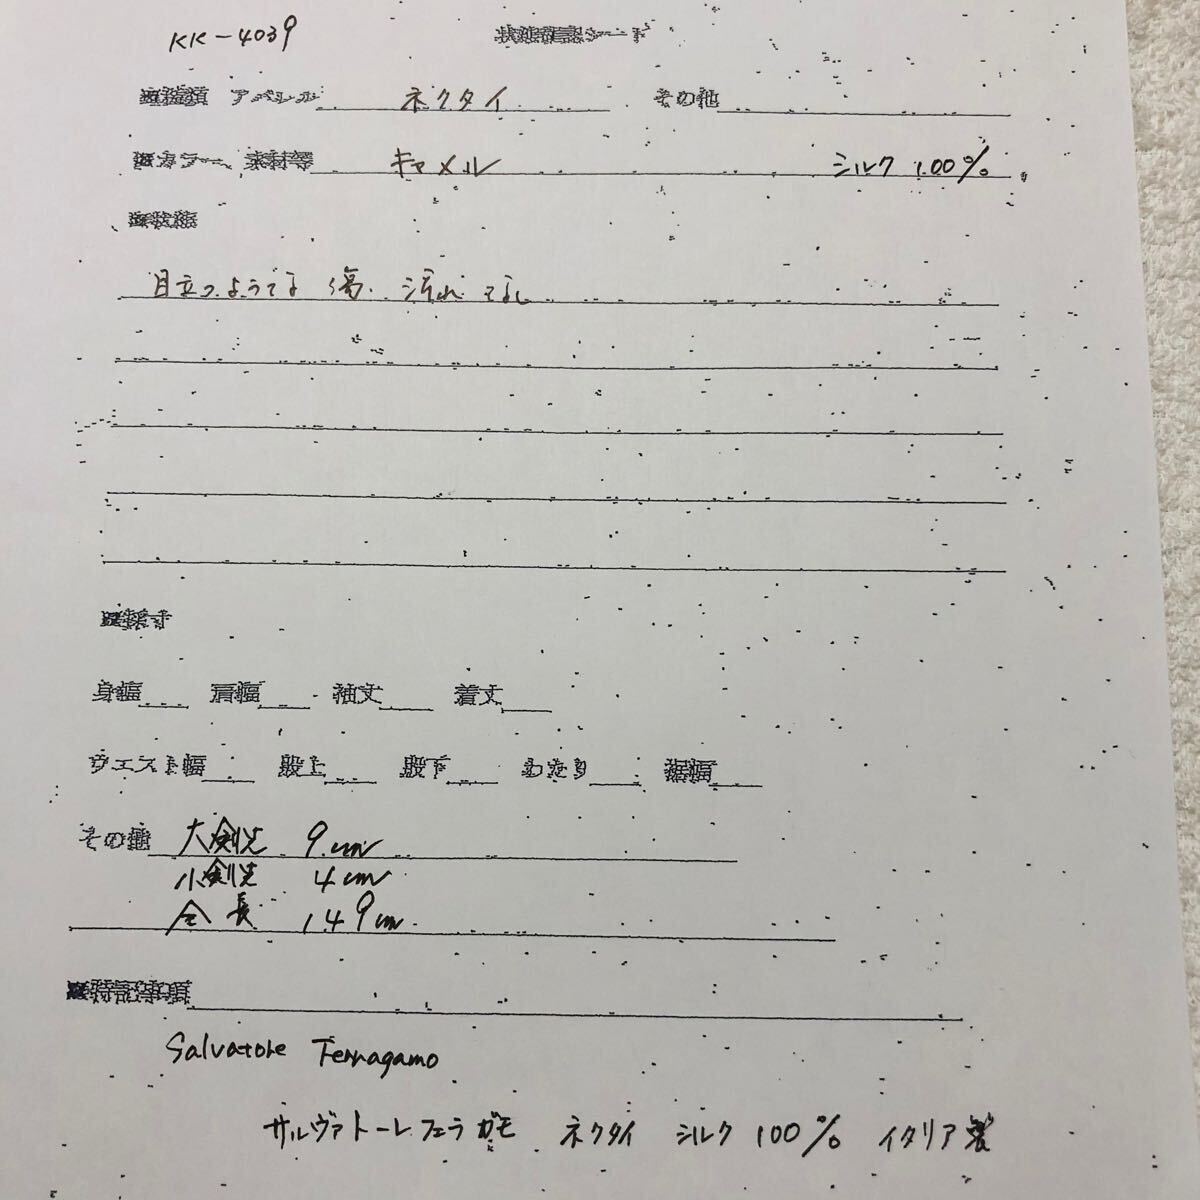 KK-4039
状態確認シート
■種類 アパレル ネクタイ その他
■カラー、素材等 キャメル シルク 100%
■状態
目立つような 傷、汚れ なし
■採寸
身幅 肩幅 袖丈 着丈
ウエスト幅 股上 股下 わたり 裾幅
その他 大剣先 9cm
小剣先 4cm
全長 149cm
■特記事項
Salvatore Ferragamo
サルヴァトーレフェラガモ ネクタイ シルク 100% イタリア製